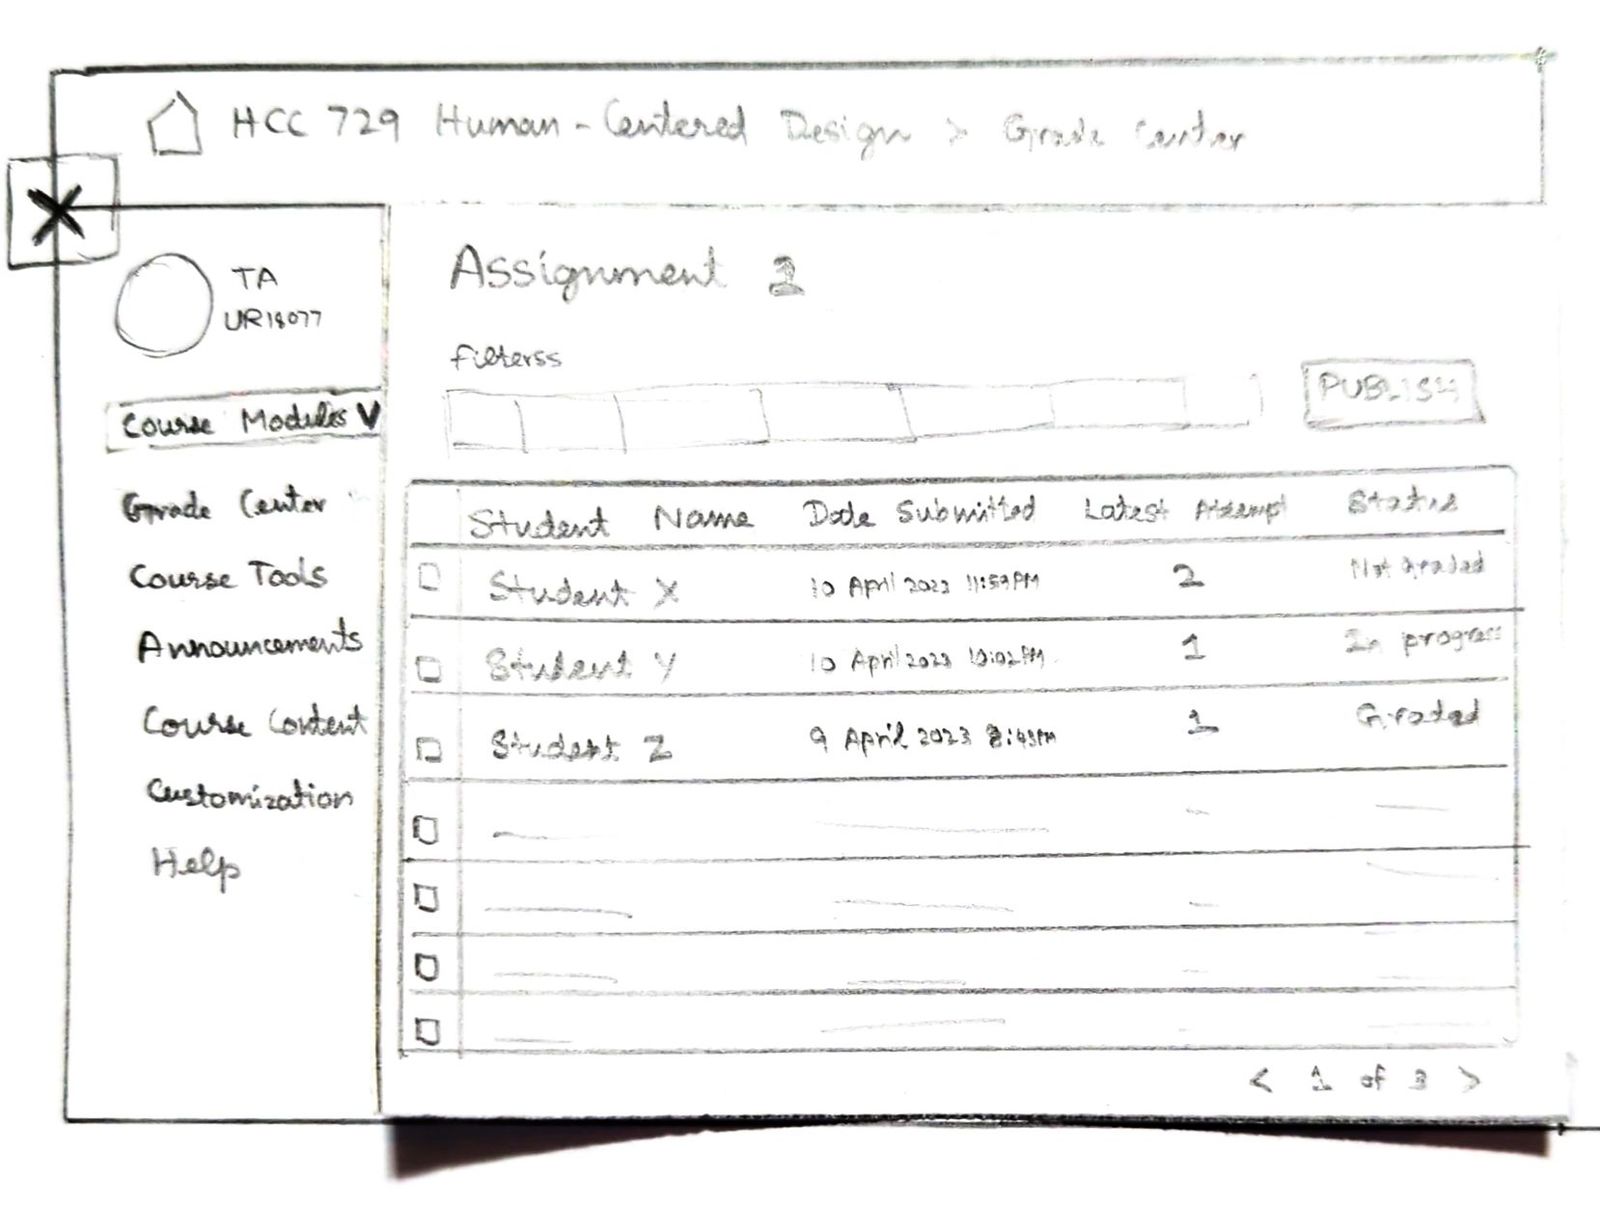 HCC 729 Human-Centered Design > Grade Center
X
TA
UR18077
Course Modules V
Grade Center
Course Tools
Announcements
Course Content
Customization
Help
Assignment 2
Filterss
PUBLISH
Student Name Date Submitted Latest Attempt Status
Student X 10 April 2023 11:59PM 2 Not Graded
Student Y 10 April 2023 10:02PM 1 In progress
Student Z 9 April 2023 8:43PM 1 Graded
< 1 of 3 >